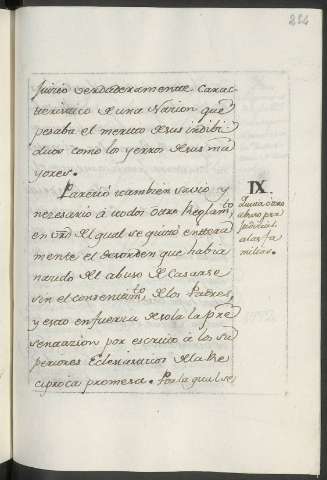 254
Juicio verdaderamente Carac-
teristico de una Nacion que
pesaba el merito de sus indibi-
duos como los yerros de sus ma-
yores.
Pareció tambien savio y
necesario á todos otro Reglam.to
en vrd. del qual se quitó entera-
mente el desorden que habia
nacido del abuso de Casarse
sin el consentim.to de los Padres,
y esto en fuerza de sola la pre-
sentazion por escrito á los su-
periores Eclesiasticos de la Re-
ciproca promesa. Por la qual se
IX.
Quita otro
abuso per-
judicial
a las fa-
milias.